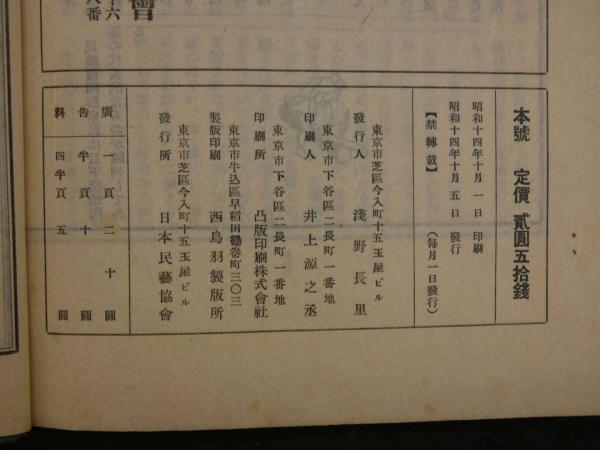 本號　定價　貳圓五拾錢
昭和十四年十月一日　印刷
昭和十四年十月五日　發行
【禁轉載】　（每月一日發行）
東京市芝區今入町十五玉屋ビル
發行人　淺野長里
東京市下谷區二長町一番地
印刷人　井上源之丞
東京市下谷區二長町一番地
印刷所　凸版印刷株式會社
東京市牛込區早稻田鶴卷町三〇三
製版印刷　西鳥羽製版所
東京市芝區今入町十五玉屋ビル
發行所　日本民藝協會
廣　一頁　二十圓
告　半頁　十圓
料　四半頁　五圓
會
十六
八番